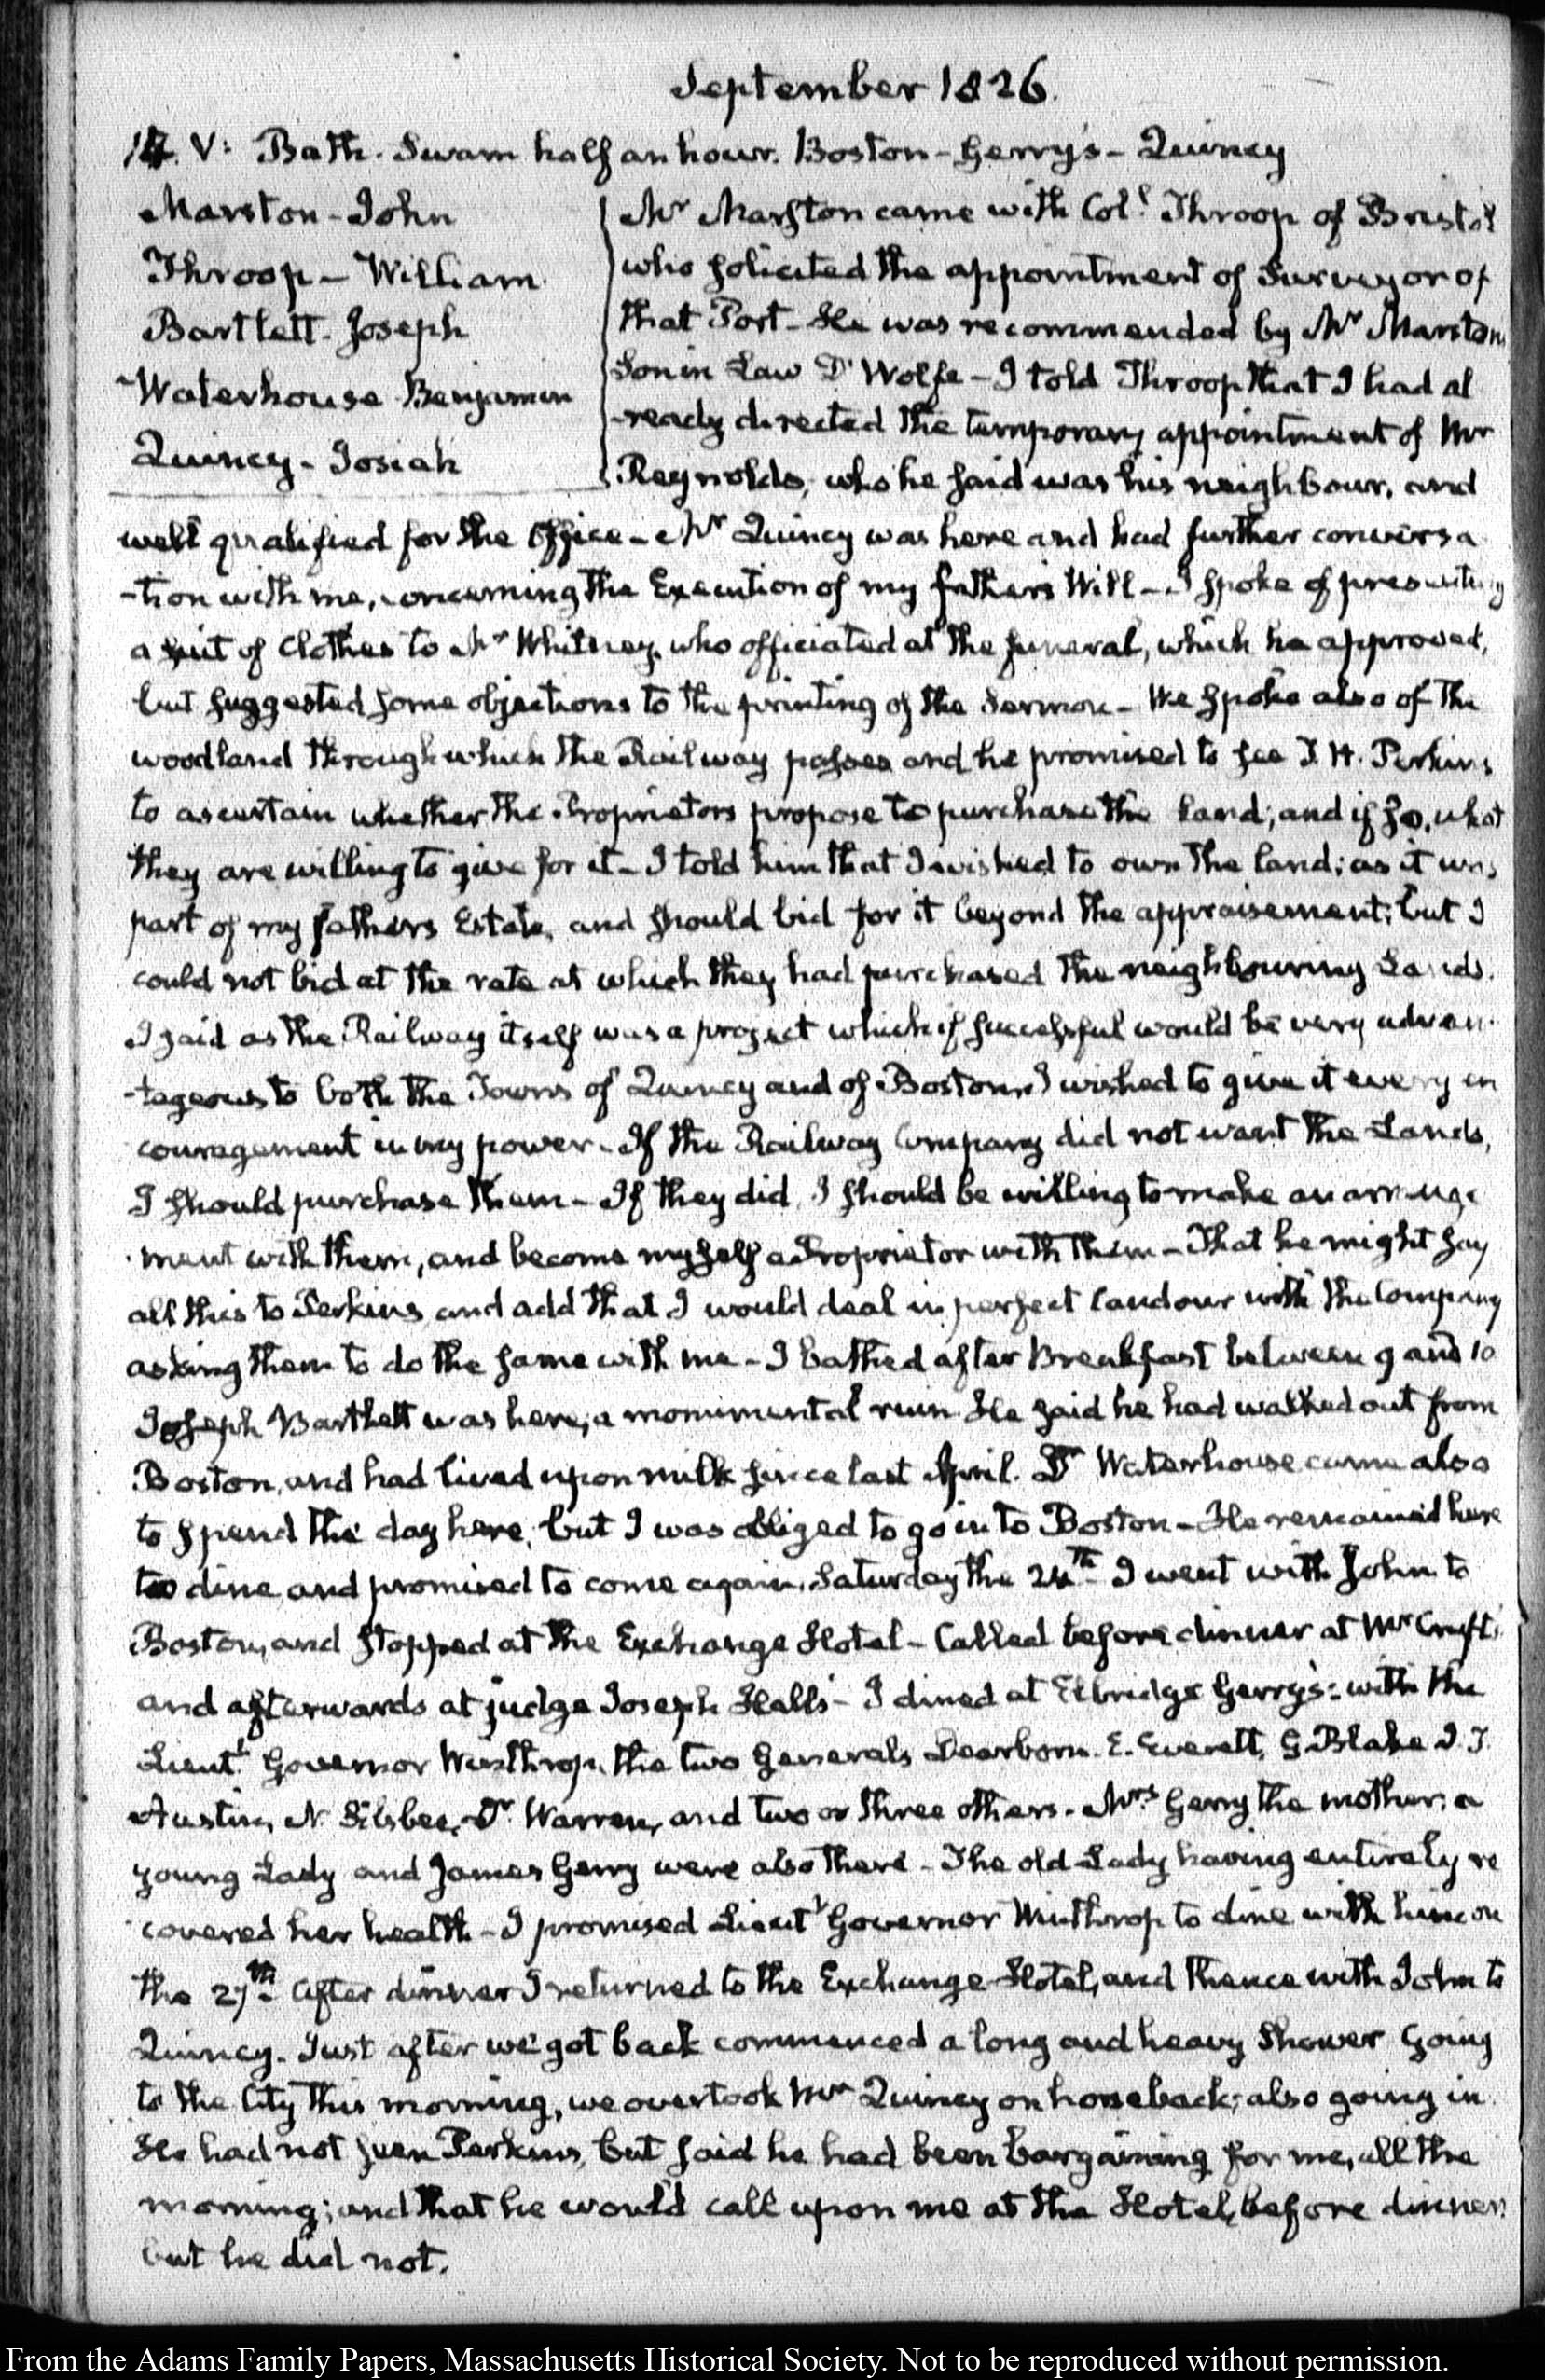 September 1826.
14. V: Bath. Swam half an hour. Boston - Gerry's - Quincy
Marston - John
Throop - William
Bartlett. Joseph
Waterhouse Benjamin
Quincy - Josiah
Mr Marston came with Col.l Throop of Bristol
who solicited the appointment of Surveyor of
that Port - He was recommended by Mr Marston
Son in Law D'Wolfe - I told Throop that I had al
-ready directed the temporary appointment of Mr
Reynolds, who he said was his neighbour, and
well qualified for the Office - Mr Quincy was here and had further conversa
-tion with me, concerning the Execution of my father's Will - I spoke of presenting
a suit of Clothes to Mr Whitney, who officiated at the funeral, which he approved,
but suggested some objections to the printing of the Sermon - We spoke also of the
woodland through which the Railway passes and he promised to see T. H. Perkins
to ascertain whether the Proprietors propose to purchase the Land; and if so, what
they are willing to give for it - I told him that I wished to own the land; as it was
part of my fathers Estate, and should bid for it beyond the appraisement; but I
could not bid at the rate at which they had purchased the neighbouring Lands.
I said as the Railway itself was a project which if successful would be very advan-
-tageous to both the Towns of Quincy and of Boston, I wished to give it every en
couragement in my power - If the Railway Company did not want the Lands,
I should purchase them - If they did, I should be willing to make an arrange
-ment with them, and become myself a Proprietor with them - That he might say
all this to Perkins and add that I would deal in perfect Candour with the Company
asking them to do the same with me - I bathed after Breakfast between 9 and 10
Joseph Bartlett was here, a monumental ruin. He said he had walked out from
Boston, and had lived upon milk since last April. Dr Waterhouse came also
to spend the day here, but I was obliged to go in to Boston - He remained here
to dine and promised to come again, Saturday the 24th - I went with John to
Boston, and stopped at the Exchange Hotel - Called before dinner at Mr Cruft's
and afterwards at judge Joseph Hall's - I dined at Elbridge Gerry's: with the
Lieut.t Governor Winthrop, the two Generals Dearborn. E. Everett, G. Blake J. T.
Austin, N. Silsbee, Dr Warren, and two or three others. Mrs Gerry the mother; a
young Lady and James Gerry were also there - The old Lady having entirely re
covered her health - I promised Lieut.t Governor Winthrop to dine with him on
the 27th - After dinner I returned to the Exchange Hotel, and thence with John to
Quincy. Just after we got back commenced a long and heavy Shower. Going
to the City this morning, we overtook Mr Quincy on horseback; also going in
He had not seen Perkins, but said he had been bargaining for me, all the
morning; and that he would call upon me at the Hotel, before dinner.
but he did not.
From the Adams Family Papers, Massachusetts Historical Society. Not to be reproduced without permission.